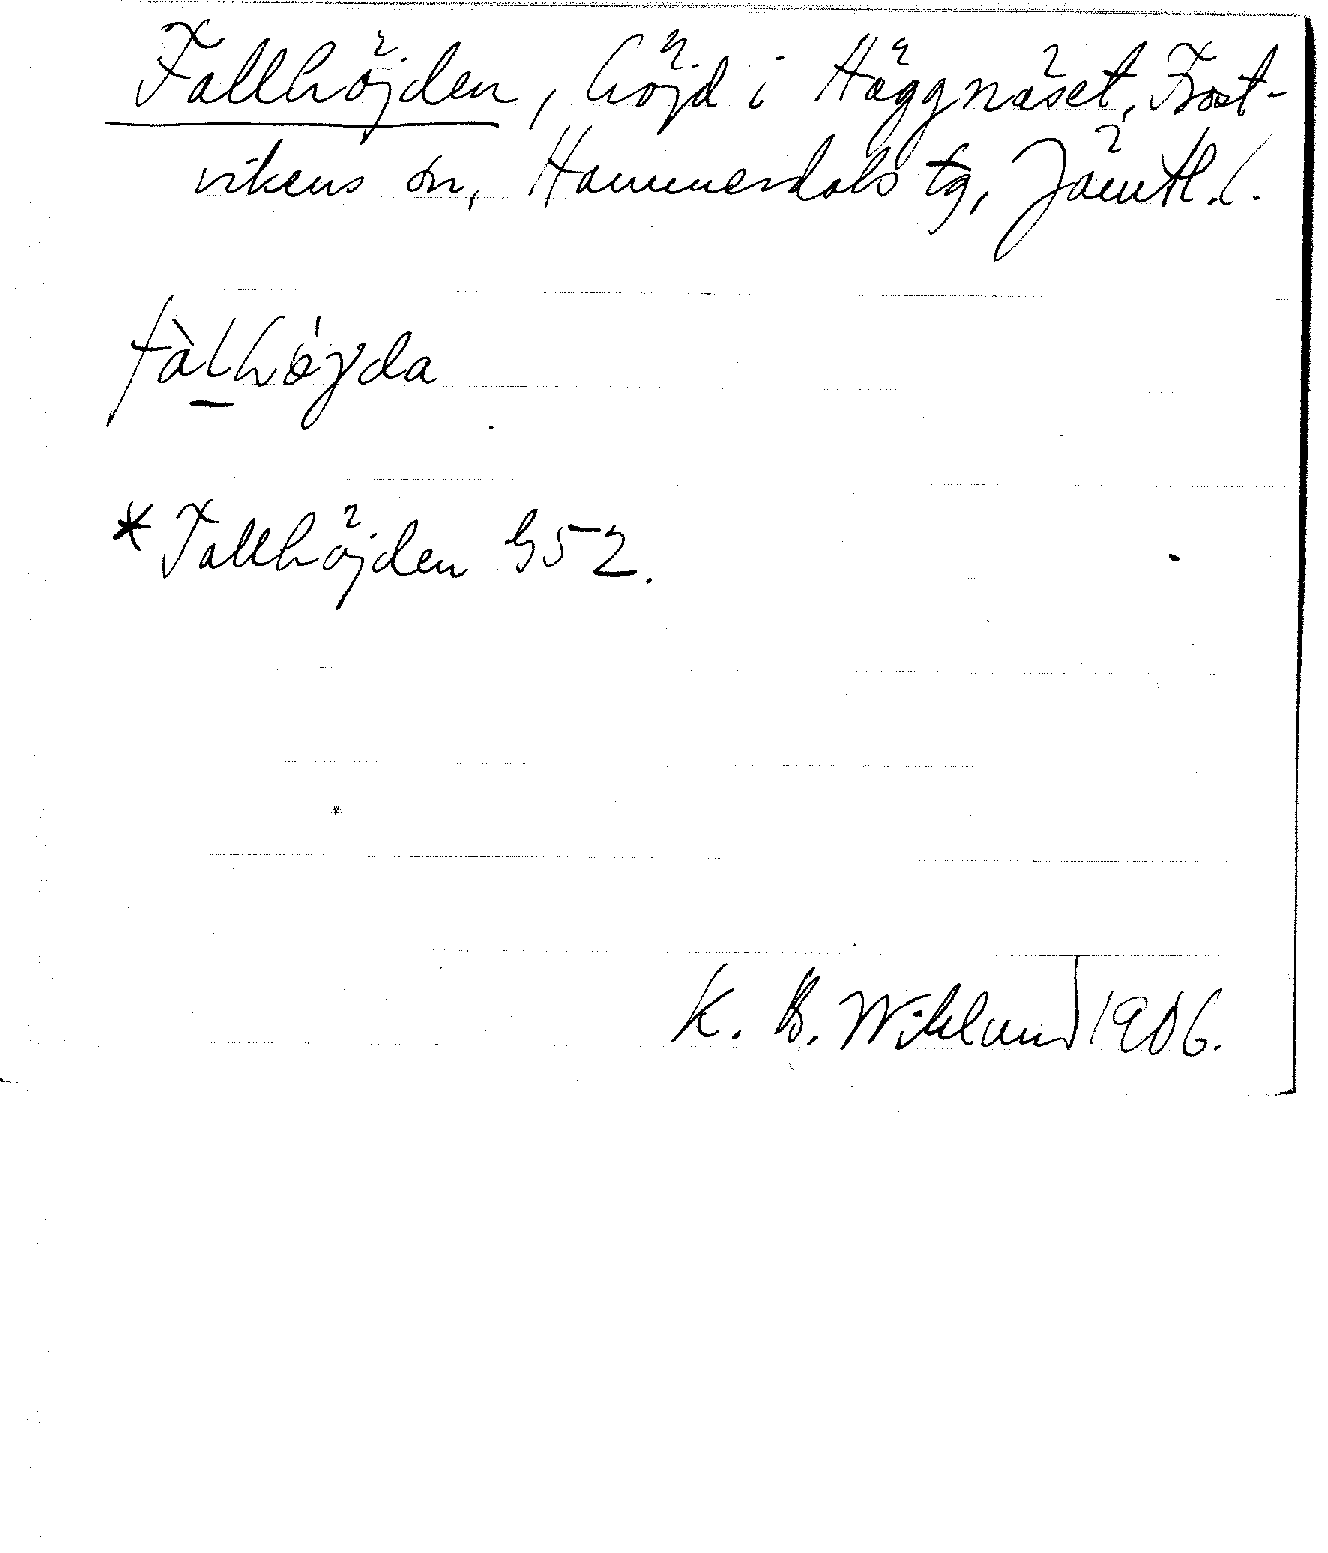 Fallhöjden, höjd i Häggnäset, Frost-
vikens sn, Hammerdals tg, Jämtl. l.
fàlhǿyda
*Fallhöjden G52.
K. B. Wiklund 1906.